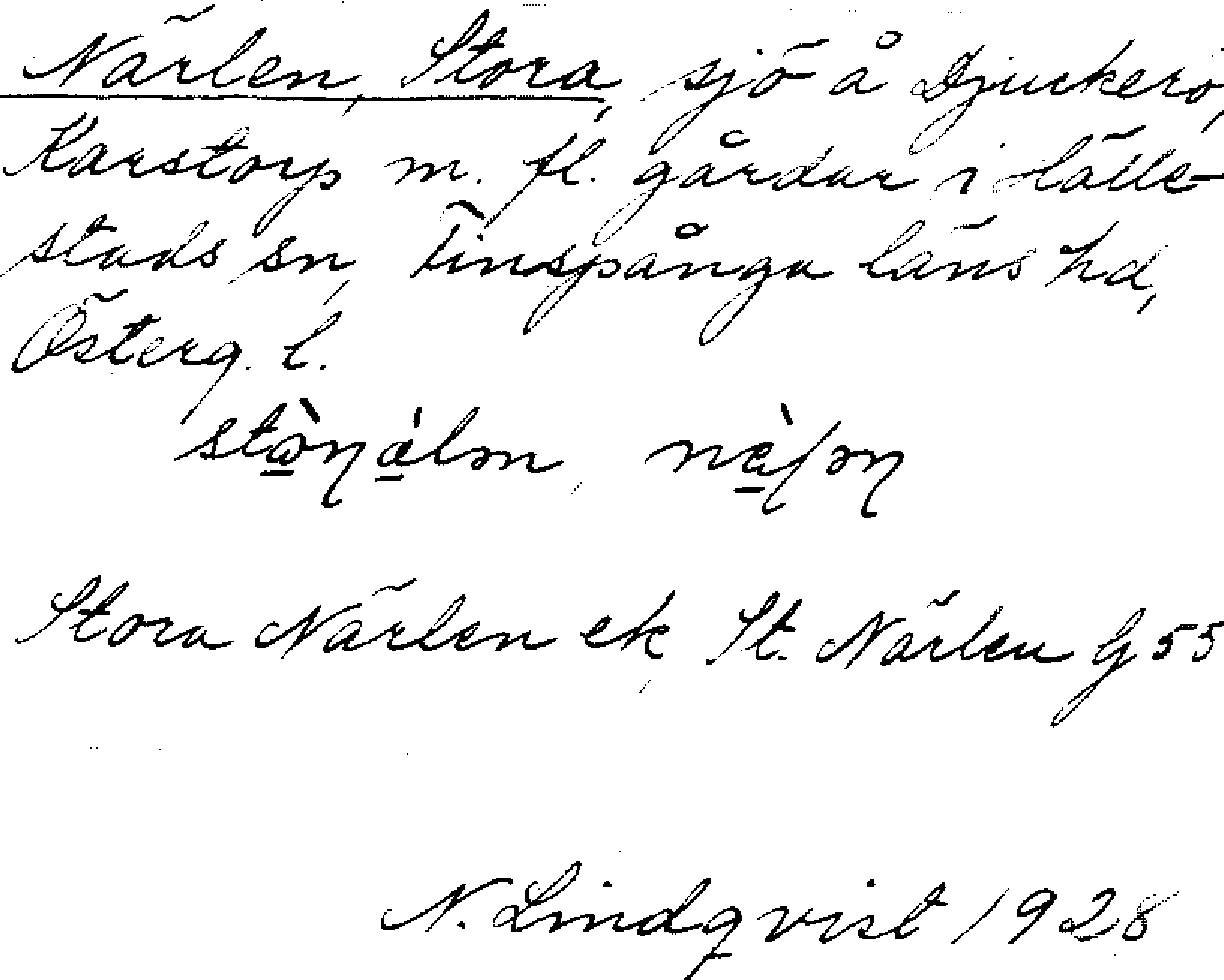 Närlen, Stora, sjö å Djuckerö,
Karstorp m. fl. gårdar i Hälle-
stads sn, Finspånga läns hd,
Österg. l.
Stora Närlen ek, St. Närlen G 55
N. Lindqvist 1928